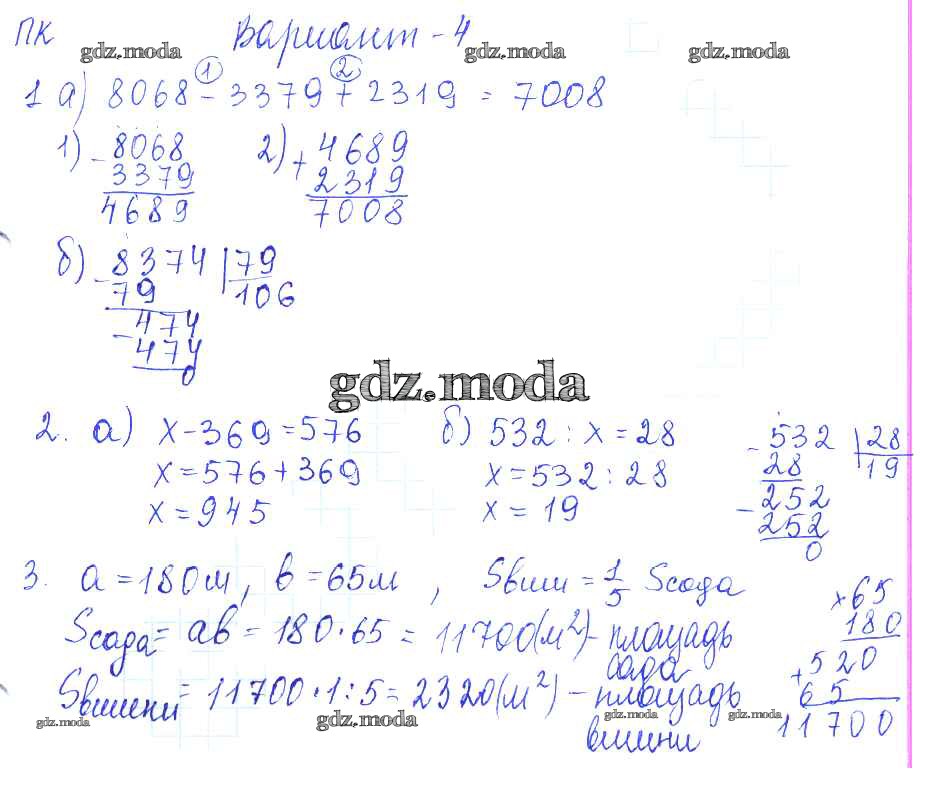 ПК Вариант - 4
gdz.moda gdz.moda gdz.moda
① ②
1 а) 8068 - 3379 + 2319 = 7008
1) - 8068 2) + 4689
3379 2319
4689 7008
б) - 8374 | 79
79 106
- 474
474
0
gdz.moda
2. а) x - 369 = 576 б) 532 : x = 28 - 532 | 28
x = 576 + 369 x = 532 : 28 28 19
x = 945 x = 19 - 252
252
0
3. a = 180м, b = 65м, Sвиш = 1/5 Sсада × 65
Sсада = ab = 180 · 65 = 11700 (м²) - площадь 180
сада + 520
Sвишни = 11700 · 1 : 5 = 2320 (м²) - площадь 65
gdz.moda gdz.moda gdz.moda gdz.moda
вишни 11700